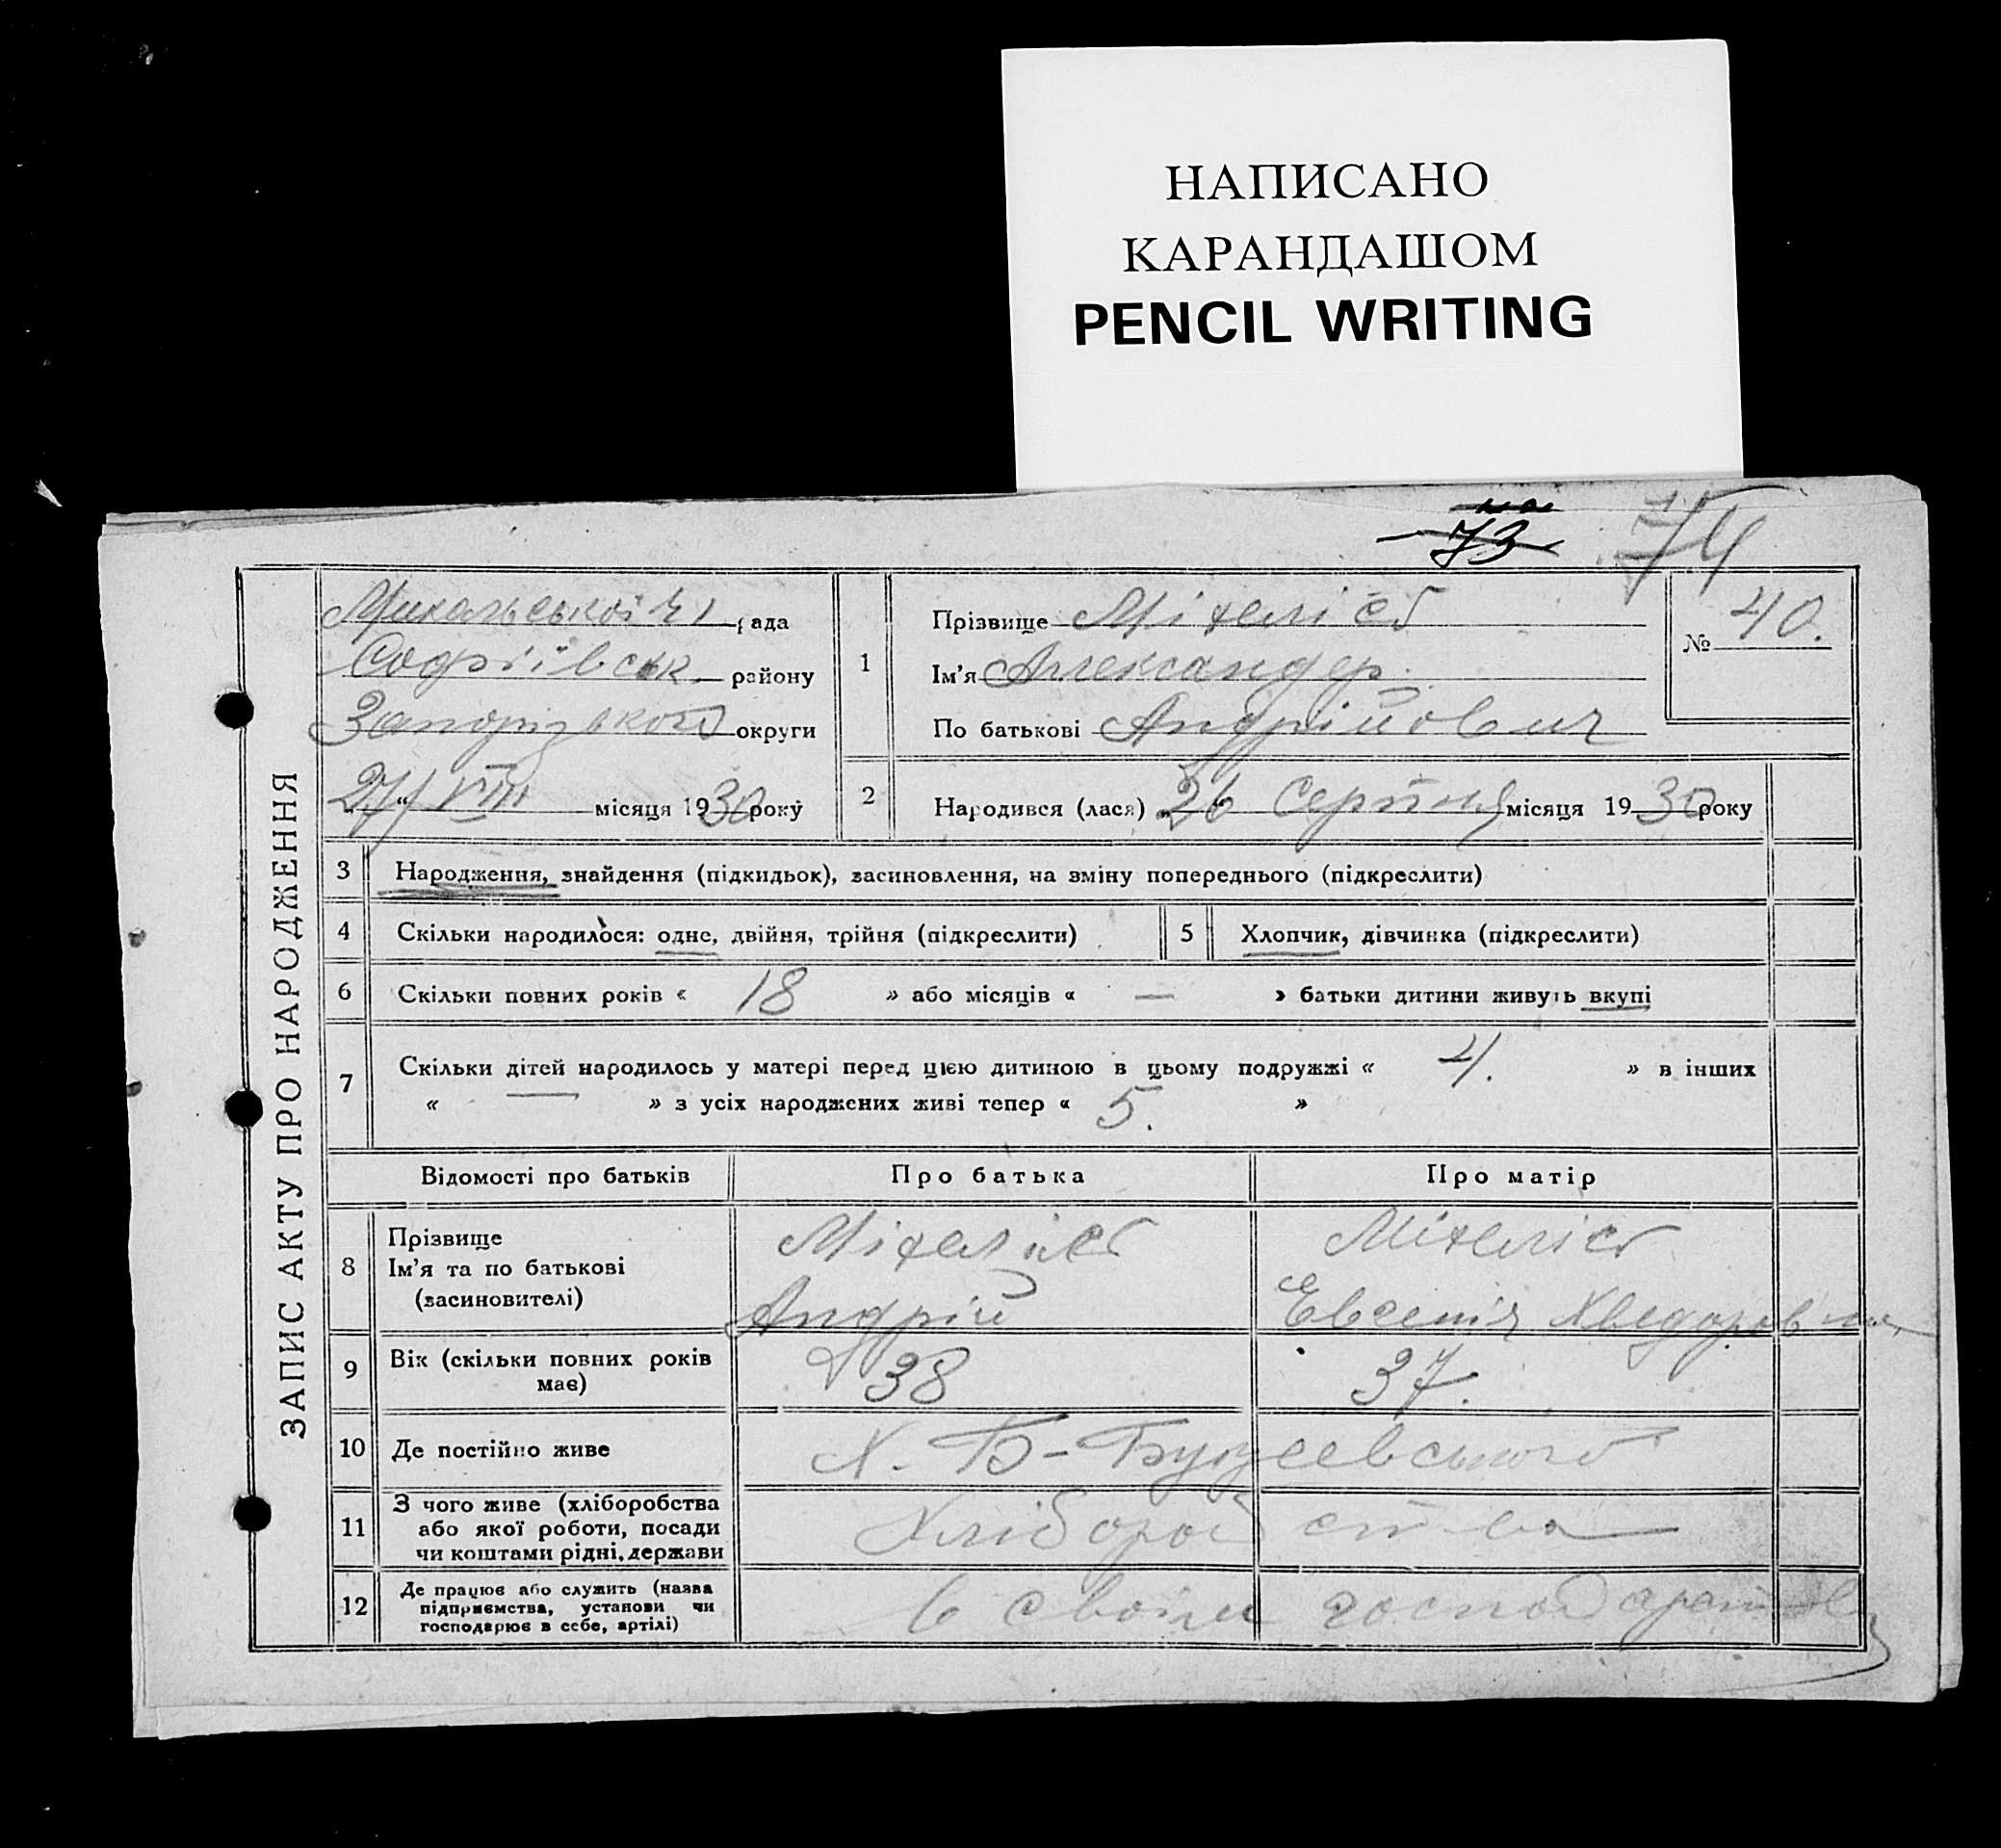 НАПИСАНО
КАРАНДАШОМ
PENCIL WRITING
73
74
ЗАПИС АКТУ ПРО НАРОДЖЕННЯ
рада
Софіївськ. району
Запорізького округи
27/VIII місяця 1930 року
1
Прізвище
Ім'я Александер.
По батькові Андрійович
№ 40.
2 Народився (лася) 26 Серпня місяця 1930 року
3 Народження, знайдення (підкидьок), засиновлення, на зміну попереднього (підкреслити)
4 Скільки народилося: одне, двійня, трійня (підкреслити)
5 Хлопчик, дівчинка (підкреслити)
6 Скільки повних років « 18 » або місяців « — » батьки дитини живуть вкупі
7 Скільки дітей народилось у матері перед цією дитиною в цьому подружжі « 4. » в інших
« — » з усіх народжених живі тепер « 5. »
Відомості про батьків Про батька Про матір
8 Прізвище
Ім'я та по батькові
(засиновителі)
Андрій
Евгенія Хведоровна
9 Вік (скільки повних років
має)
38
37.
10 Де постійно живе Х. Б-
11 З чого живе (хліборобства
або якої роботи, посади
чи коштами рідні, держави
Хліборобство
12 Де працює або служить (назва
підприємства, установи чи
господарює в себе, артілі)
в своїм